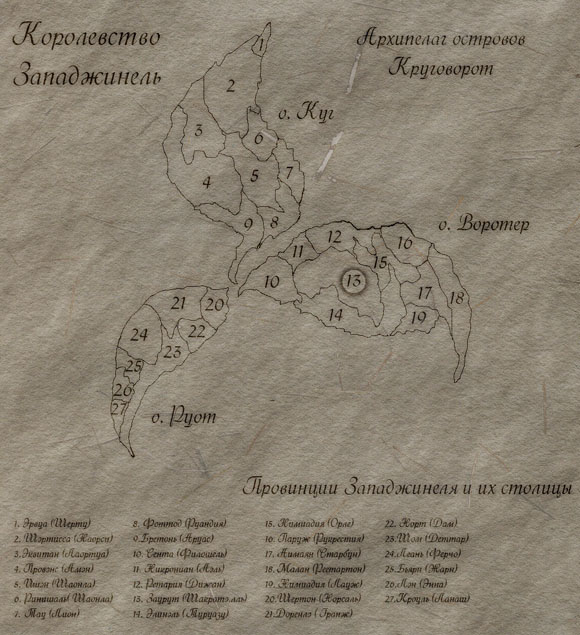 Королевство
Западжинель
Архипелаг островов
Круговорот
о. Куг
о. Воротер
о. Руот
1
2
3
6
4
5
7
9
8
10
11
12
15
16
13
14
17
18
19
21
20
24
22
23
25
26
27
Провинции Западжинеля и их столицы
1. Эрвуа (Шерту)
2. Шортисса (Каорси)
3. Эквитан (Лаортуа)
4. Провэнс (Амэн)
5. (Шаонла)
6. Ринишали (Шаонла)
7. Тау (Лион)
8. Фоттод (Руандия)
9. Бретонь (Ардас)
10. Сента (Филошель)
11. Никронион (Аэль)
12. Ретария (Дижан)
13. Заурут (Шакротэлль)
14. Элинэль (Туруазу)
15. Килшадия (Орле)
16. Ларуж (Рукрестия)
17. Лимаян (Старбун)
18. Малан (Рестартон)
19. Килшадия (Лауж)
20. Шертон (Корсаль)
21. Доренлэ (Гранж)
22. Корт (Дам)
23. Шон (Деттар)
24. Леань (Ферчо)
25. Бьяри (Жарн)
26. Лэн (Энна)
27. Кроуль (Ланаш)